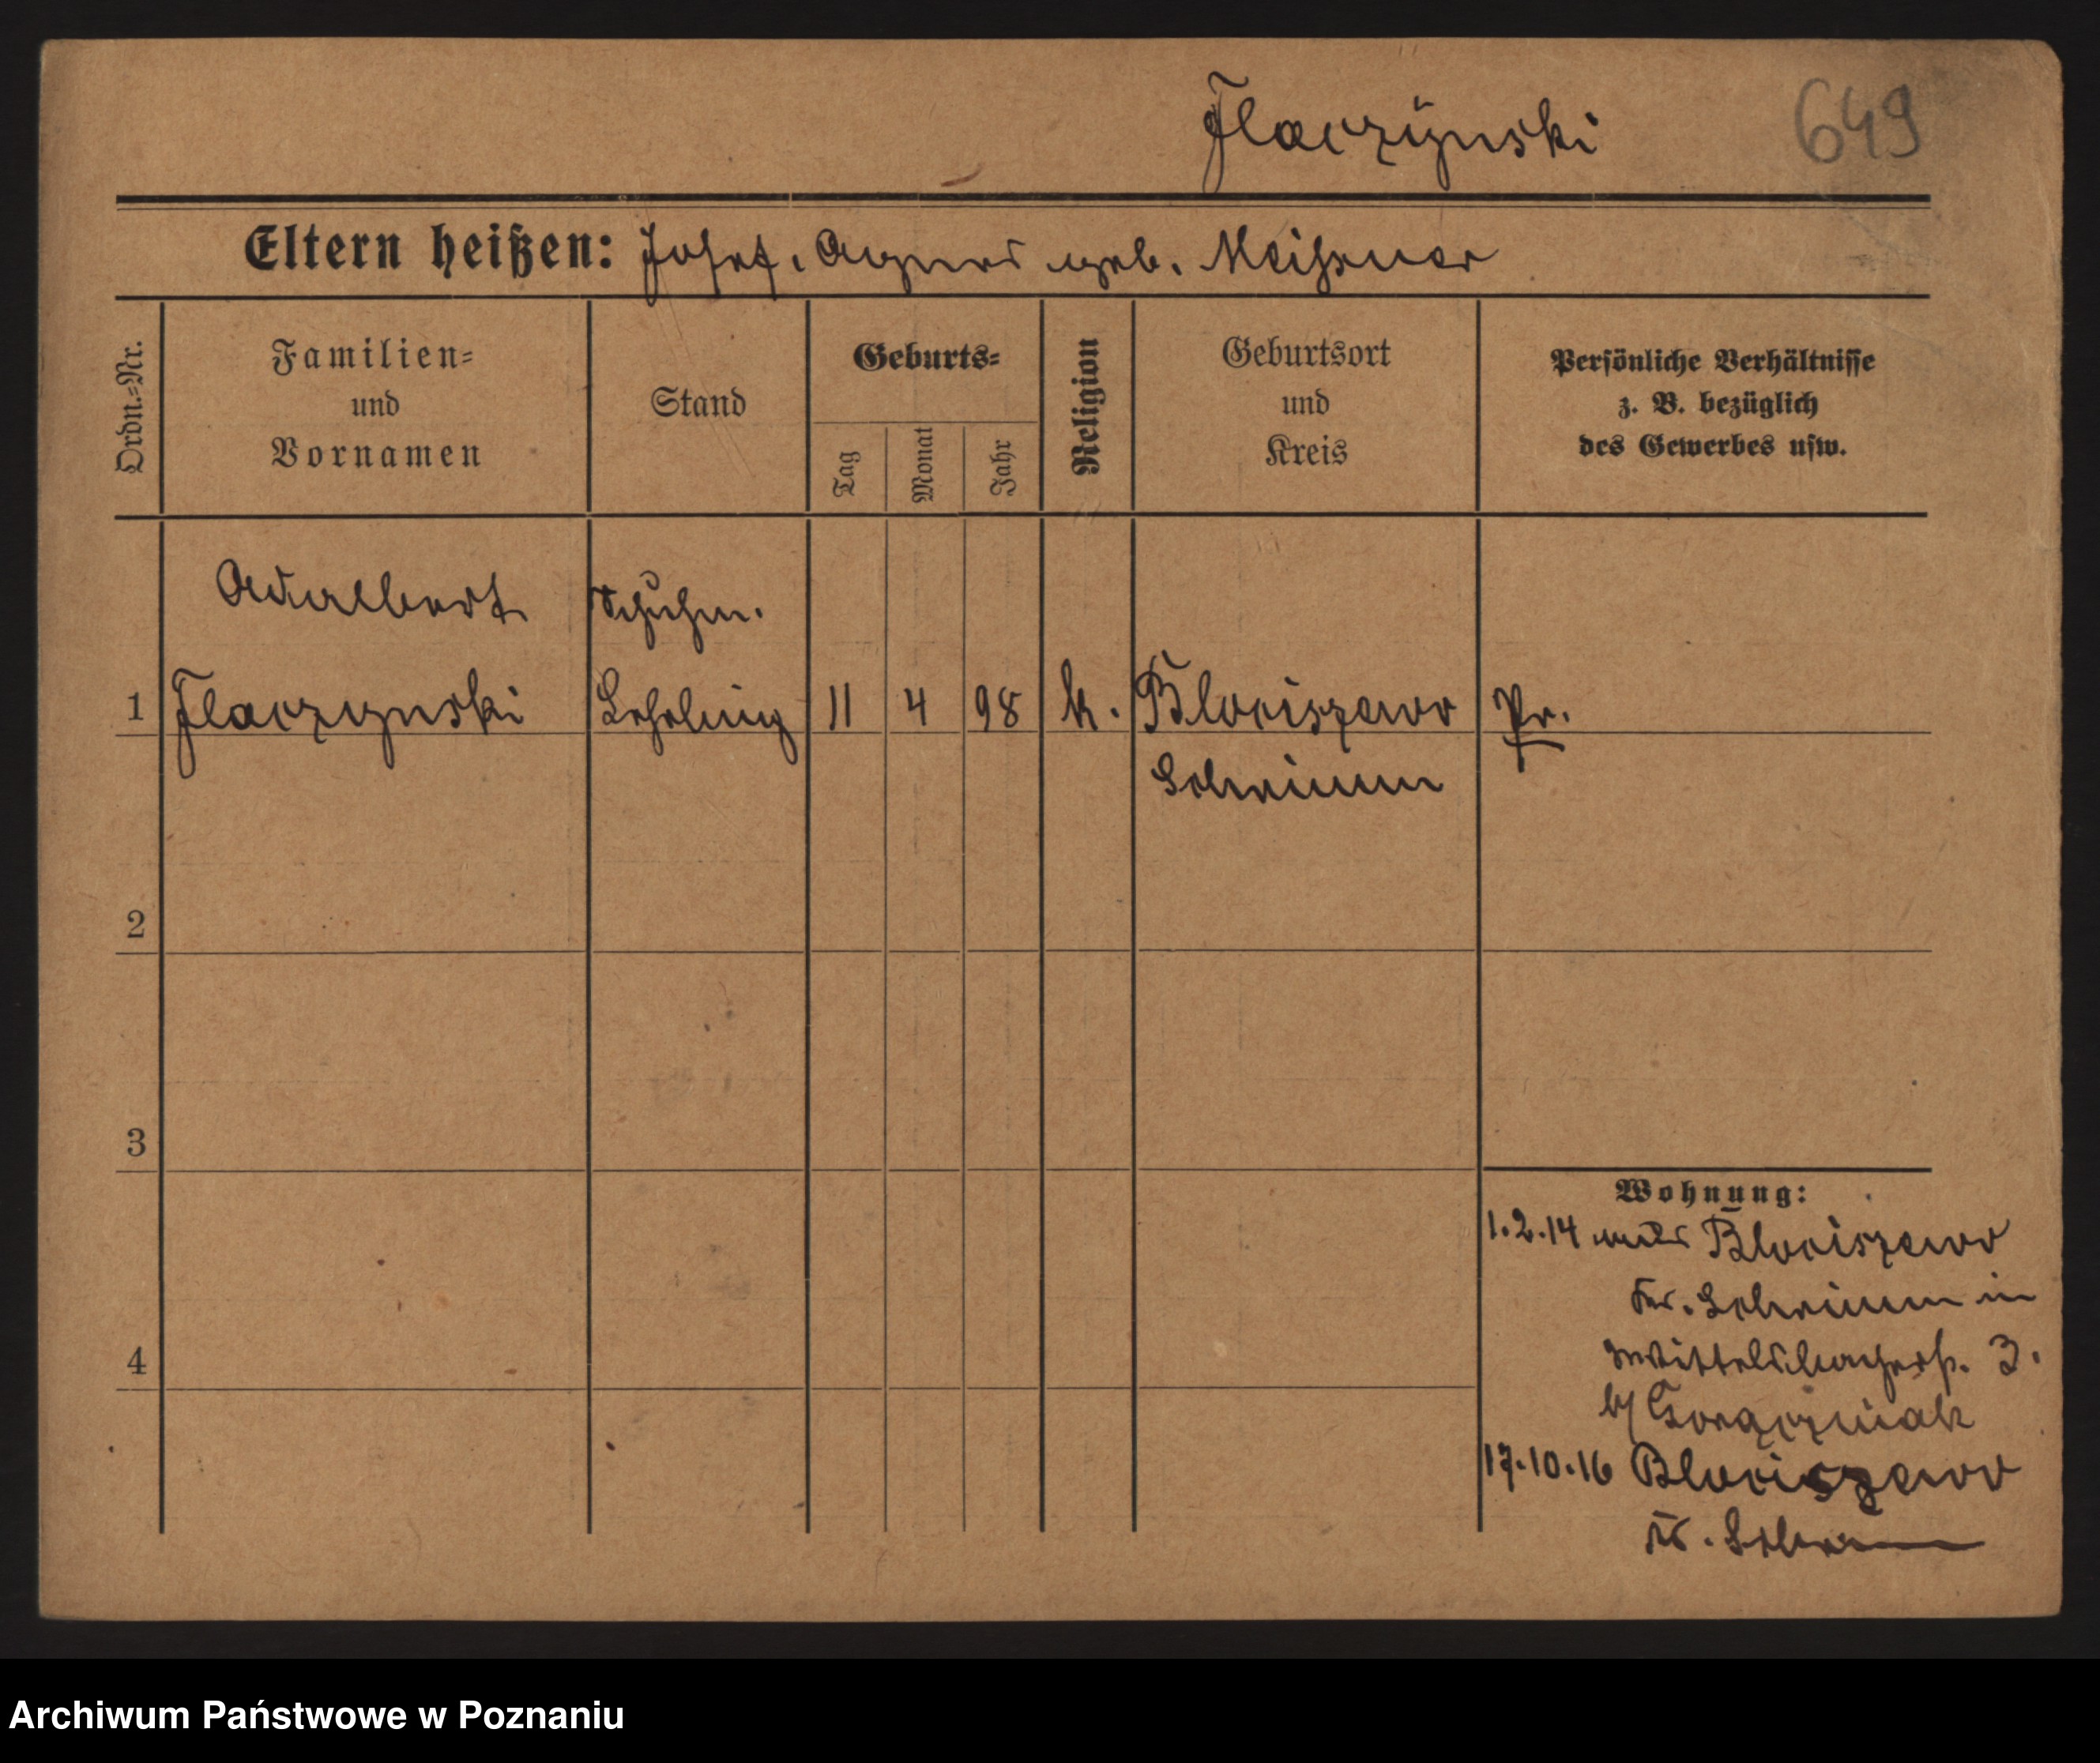 Flaczynski 649
Eltern heißen: Josef, Agnes geb. Meißner
Ordn.-Nr.
Familien-
und
Vornamen
Stand
Geburts-
Tag
Monat
Jahr
Religion
Geburtsort
und
Kreis
Persönliche Verhältnisse
z. B. bezüglich
des Gewerbes usw.
Adalbert Schuhm.
1 Flaczynski Lehrling 11 4 98 k. Blociszewo Pr.
Schrimm
2
3
4
Wohnung:
1.2.14 aus Blociszewo
Kr. Schrimm in
3.
b/
17.10.16 Blociszewo
Kr. Schrimm
Archiwum Państwowe w Poznaniu